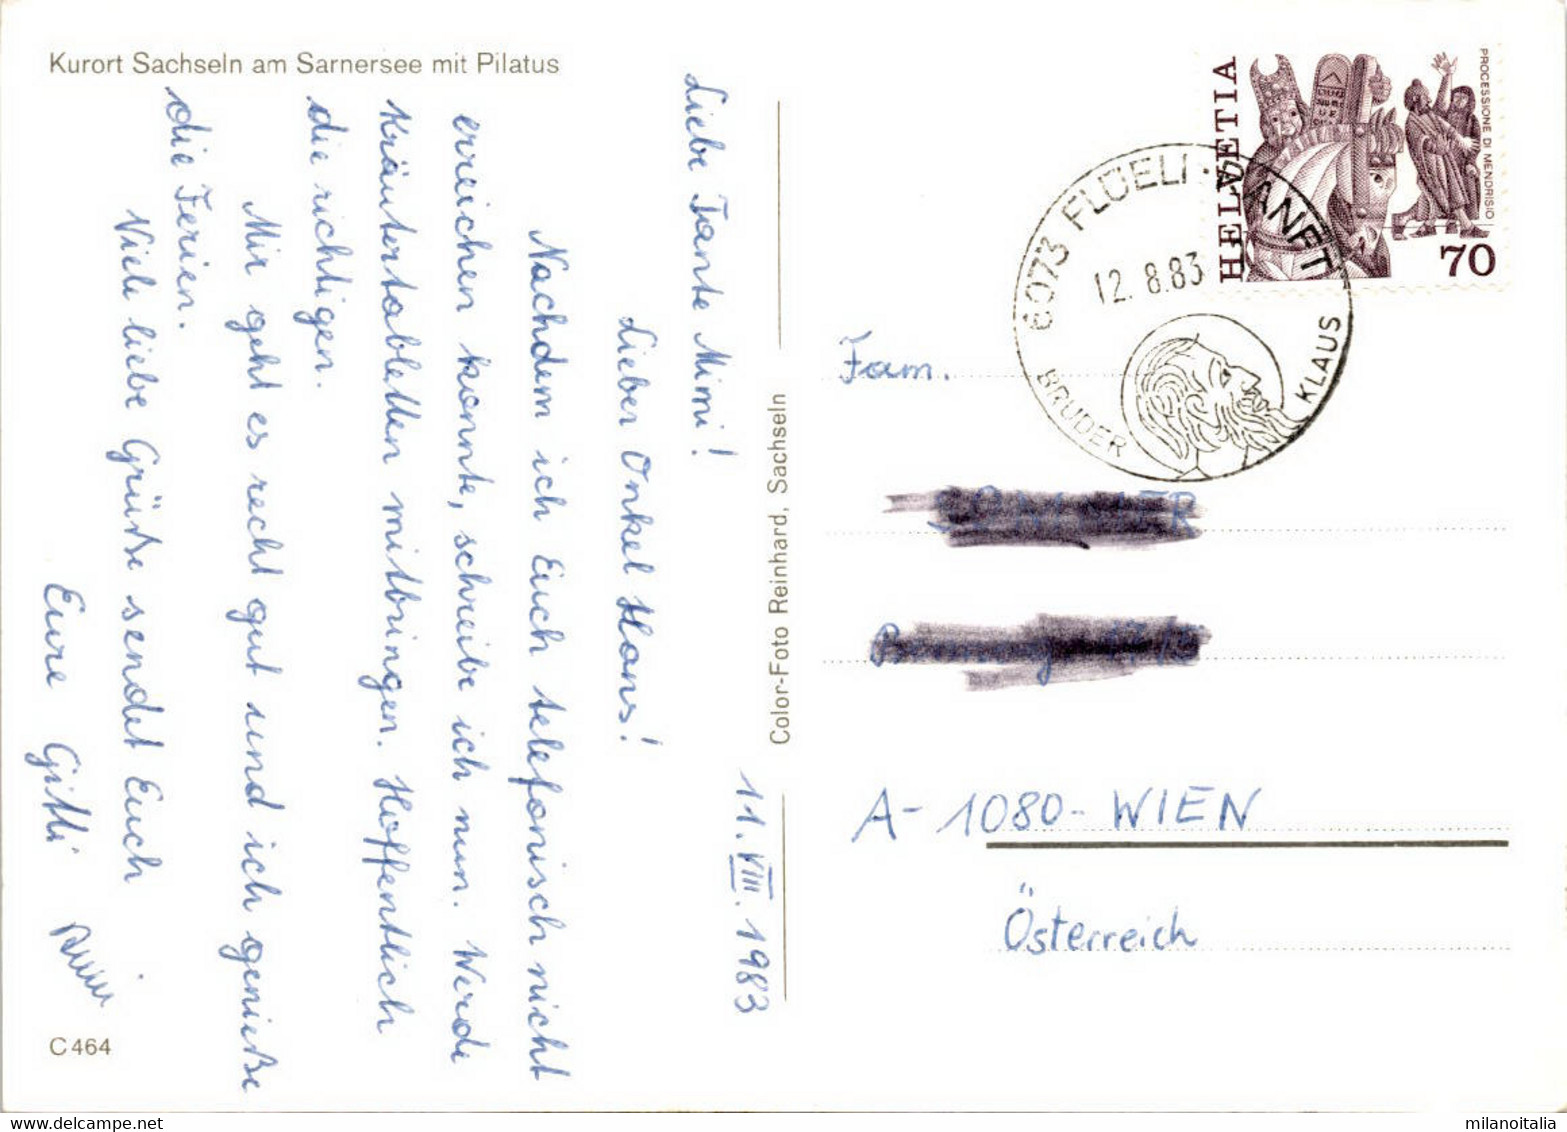 Kurort Sachseln am Sarnersee mit Pilatus
11. VIII. 1983
Liebe Tante Mimi!
Lieber Onkel Hans!
Nachdem ich Euch telefonisch nicht
erreichen konnte, schreibe ich nun. Werde
Kräutertabletten mitbringen. Hoffentlich
die richtigen.
Mir geht es recht gut und ich genieße
die Ferien.
Viele liebe Grüße sendet Euch
Eure Gitti
C 464
Color-Foto Reinhard, Sachseln
HELVETIA
PROCESSIONE DI MENDRISIO
70
6073 FLÜELI-RANFT
12.8.83
BRUDER KLAUS
Fam.
A-1080-WIEN
Österreich
milanoitalia